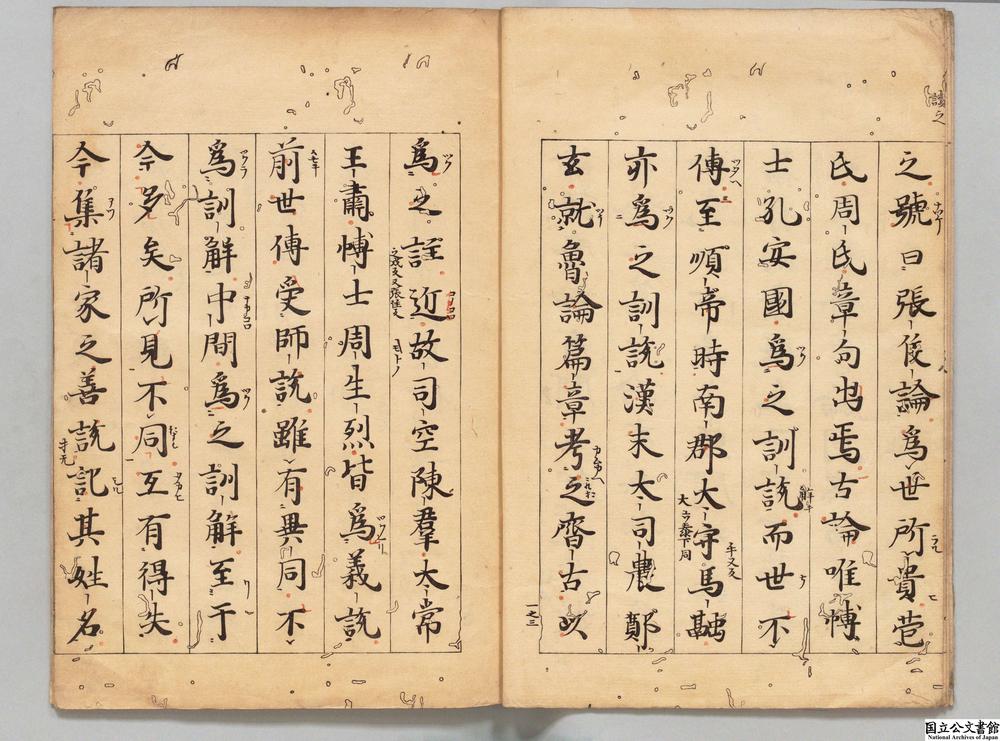 讀之
之號曰張侯論為世所貴苞
氏周氏章句出焉古論唯博
士孔安國為之訓說而世不
傳至順帝時南郡大守馬融
亦為之訓說漢末大司農鄭
玄就魯論篇章考之齊古以
一之三
為之註近故司空陳羣太常
王肅博士周生烈皆為義說
前世傳受師說雖有異同不
為訓解中間為之訓解至于
今多矣所見不同互有得失
今集諸家之善說記其姓名
国立公文書館
National Archives of Japan